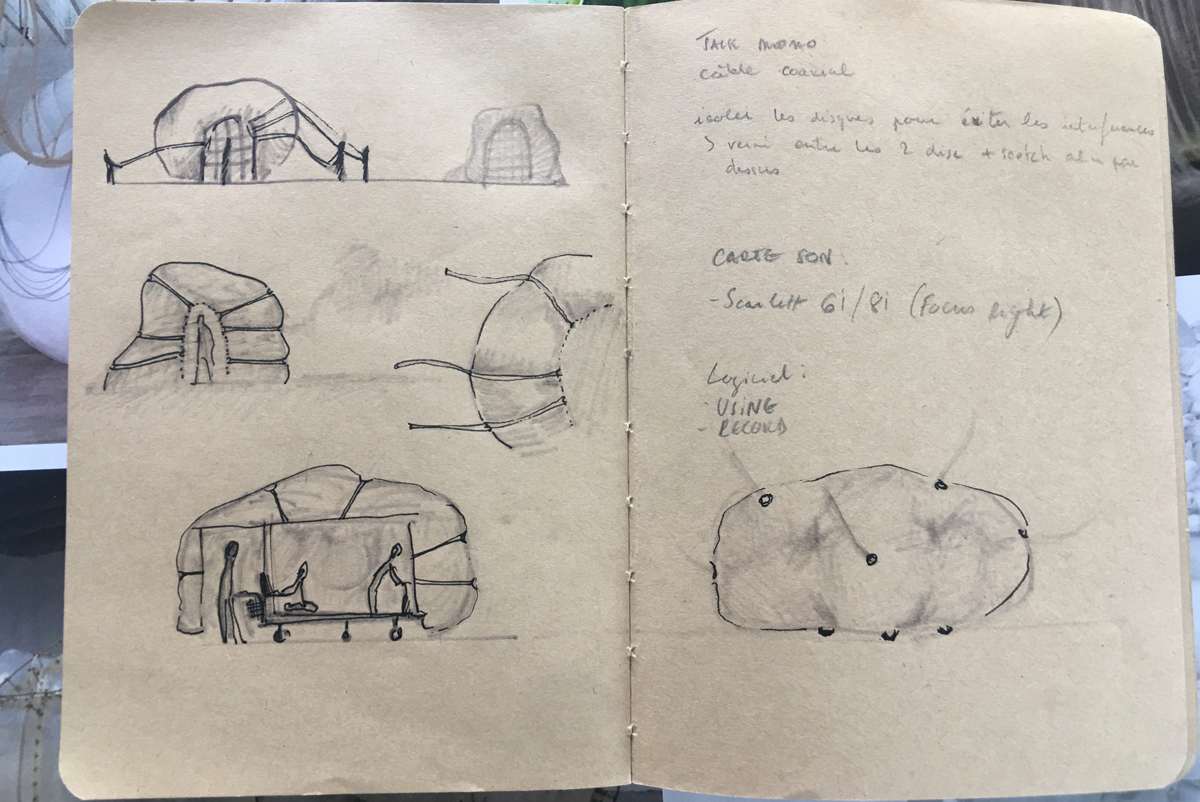 JACK MONO
câble coaxial
isoler les disques pour éviter les interférences
verni entre les 2 disc + scotch alu par
dessus
CARTE SON :
- Scarlett 6i/8i (Focus Right)
Logiciel :
- USINE
- RECORD